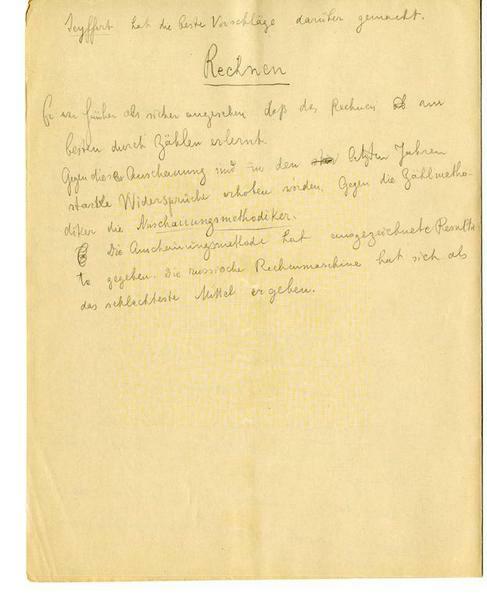 Seyffert hat die beste Vorschläge darüber gemacht.
Rechnen
Es war früher als sicher angesehen daß das Rechnen am
besten durch Zählen erlernt.
Gegen diese Anschauung sind in den letzten Jahren
starke Widersprüche erhoben worden. Gegen die Zählmetho-
diker die Anschauungsmethodiker.
Die Anschauungsmethode hat ausgezeichnete Resulta-
te gegeben. Die russische Rechenmaschine hat sich als
das schlechteste Mittel ergeben.